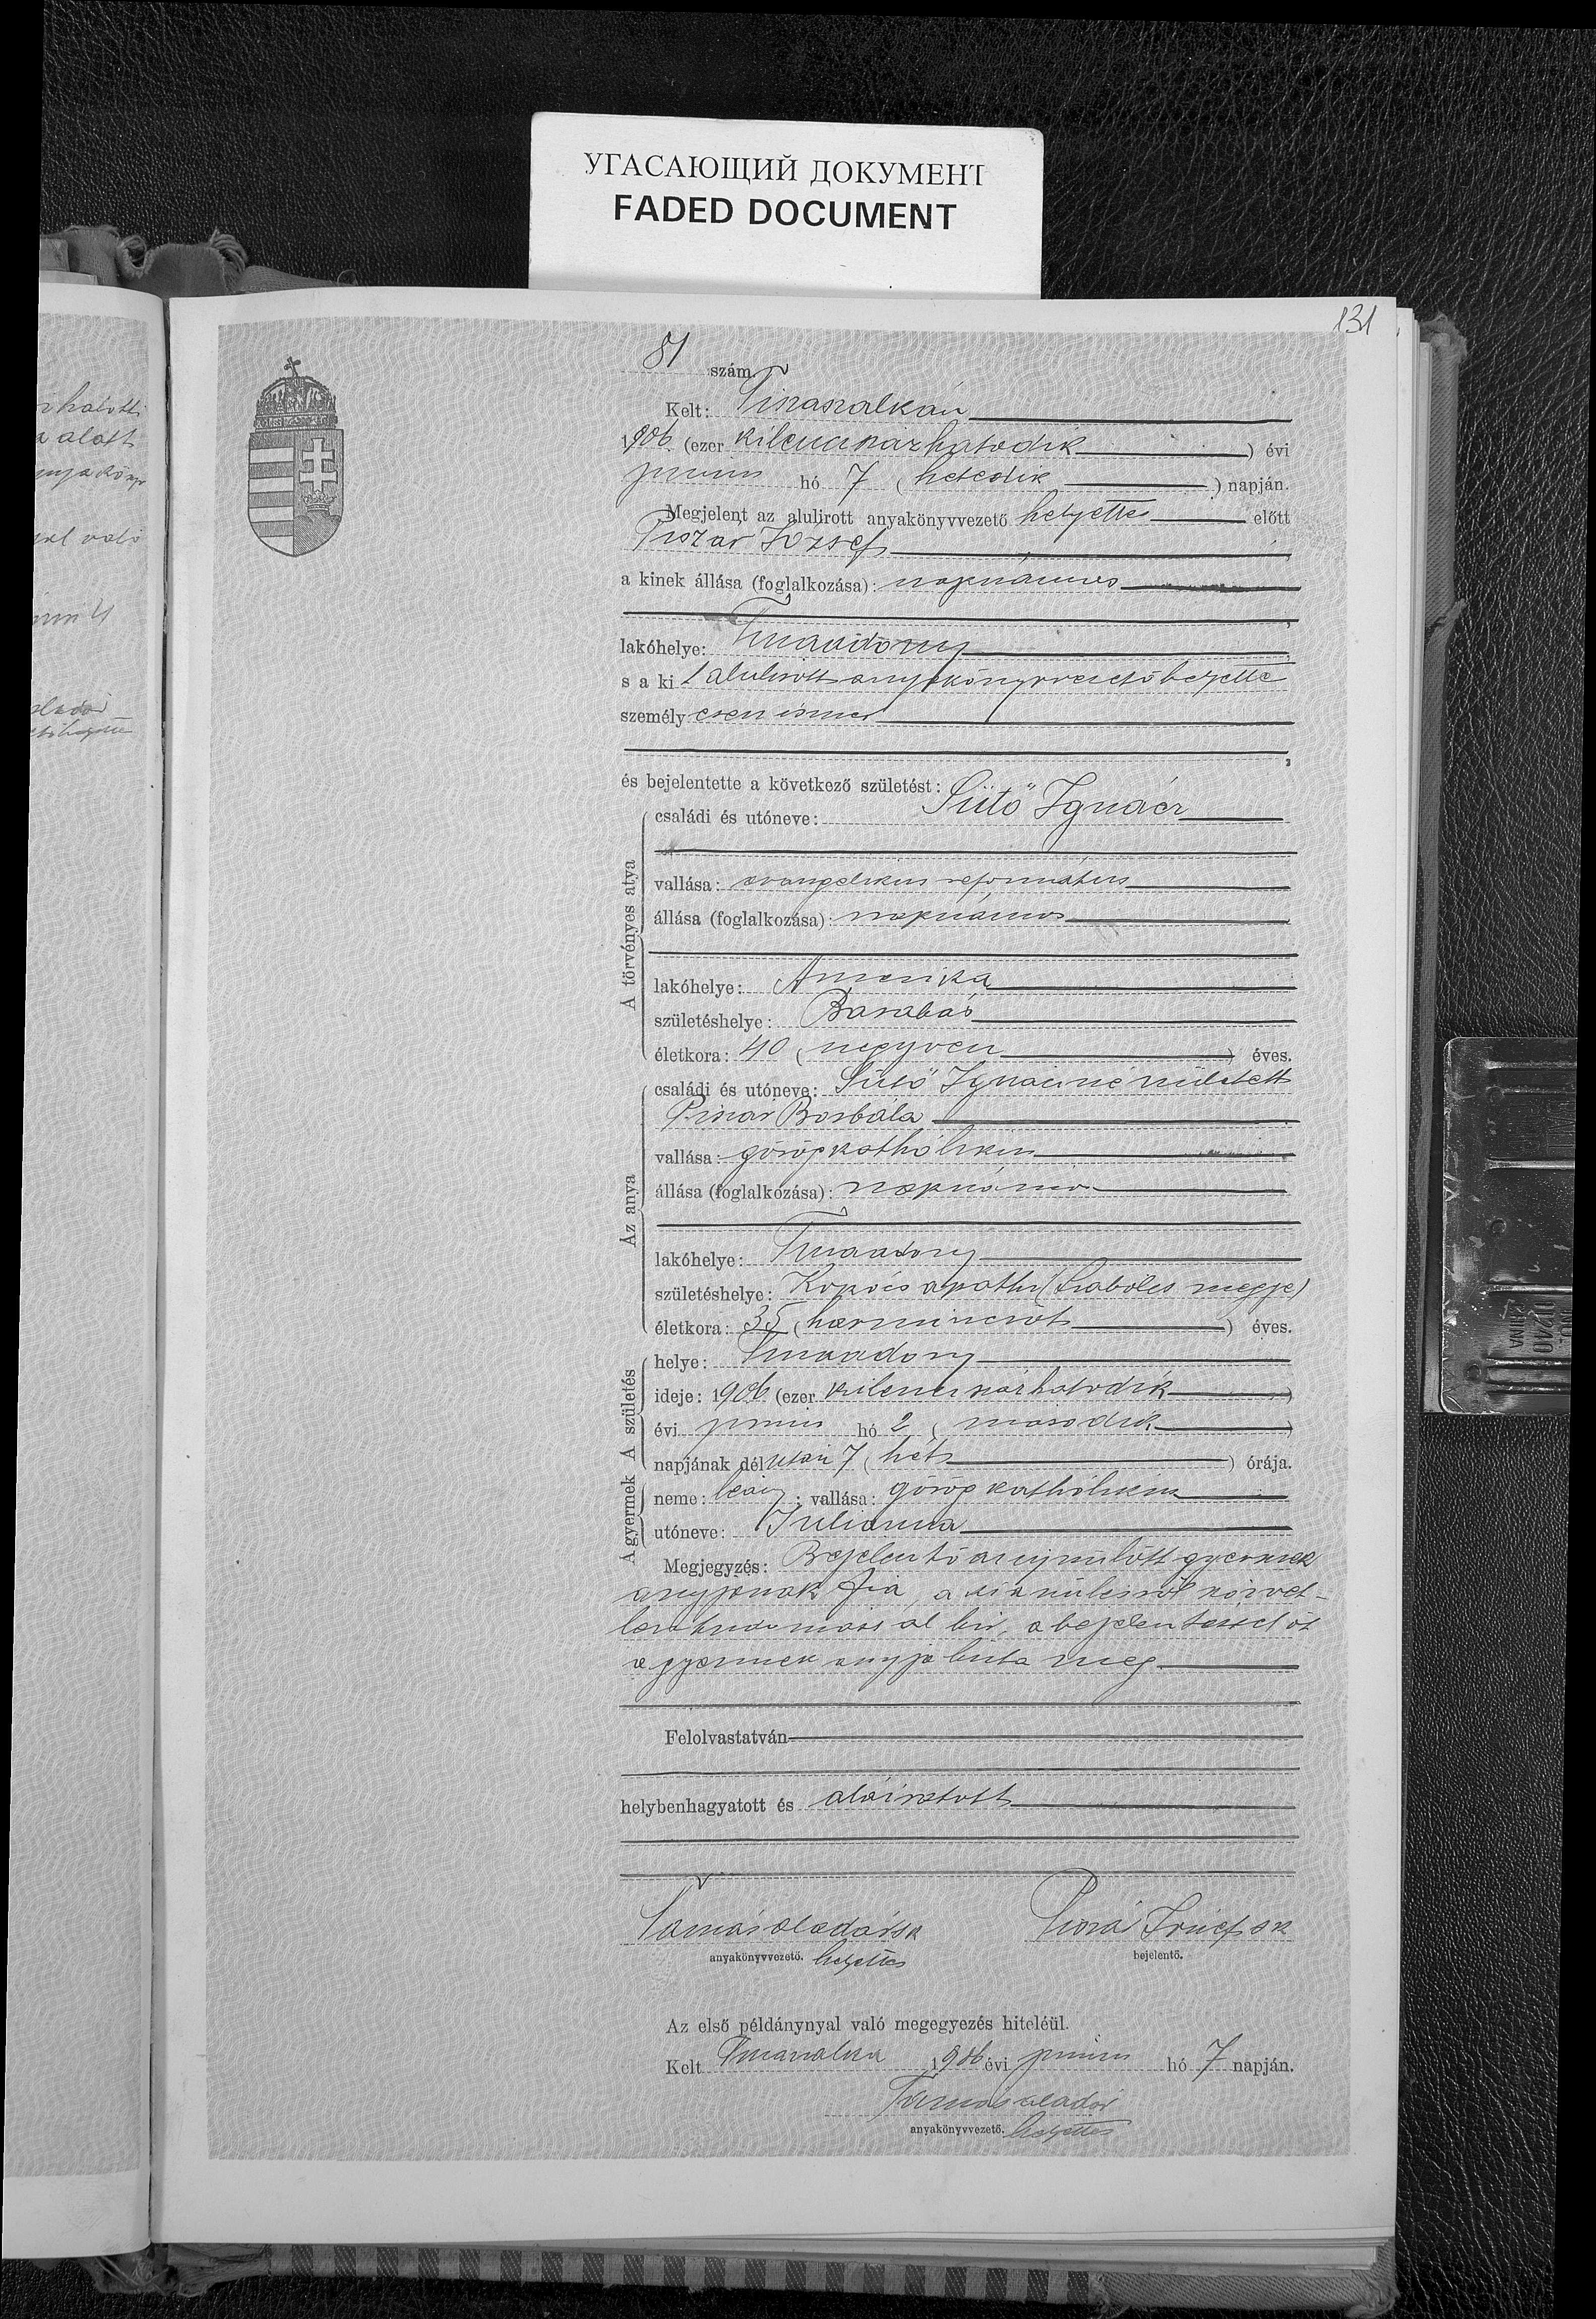 УГАСАЮЩИЙ ДОКУМЕНТ
FADED DOCUMENT
131
81 szám.
Kelt: Tiszaszalkán
1906 (ezer kilenczszázhatodik) évi
junius hó 7 (hetedik) napján.
Megjelent az alulirott anyakönyvvezető helyettes előtt
Piszár József
a kinek állása (foglalkozása): napszámos
lakóhelye: Tiszaadony
s a ki t alulirott anyakönyvvezető helyettes
személyesen ismer
és bejelentette a következő születést:
A törvényes atya
családi és utóneve: Sütő Ignácz
vallása: evangelikus református
állása (foglalkozása): napszámos
lakóhelye: Amerika
születéshelye: Barabás
életkora: 40 (negyven) éves.
Az anya
családi és utóneve: Sütő Ignáczné született
Piszár Borbála
vallása: görög katholikus
állása (foglalkozása): napszámos
lakóhelye: Tiszaadony
születéshelye: Kopócs apáthi (Szabolcs megye)
életkora: 35 (harminczöt) éves.
A születés
helye: Tiszaadony
ideje: 1906 (ezer kilenczszázhatodik)
évi junius hó 2 (második)
napjának délután 7 (hét) órája.
A gyermek
neme: leány; vallása: görög katholikus
utóneve: Julianna
Megjegyzés: Bejelentő az ujszülött gyermek
anyjának fia, a szülésről közvet-
len tudomással bir, a bejelentéssel őt
a gyermek anyja bizta meg
Felolvastatván
helybenhagyatott és aláiratott
Tamás Aladár sk
Piszár József sk
anyakönyvvezető. helyettes
bejelentő.
Az első példánynyal való megegyezés hiteléül.
Kelt Tiszaszalka 1906 évi junius hó 7 napján.
Tamás Aladár
anyakönyvvezető. helyettes